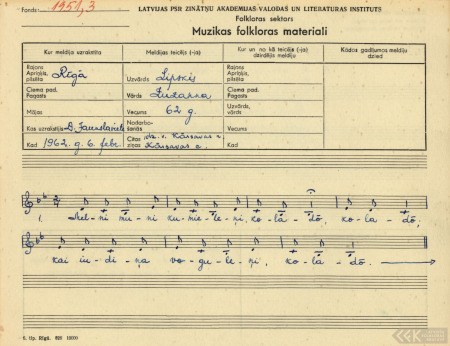 Fonds: 1951, 3
LATVIJAS PSR ZINĀTŅU AKADĒMIJAS VALODAS UN LITERATŪRAS INSTITŪTS
Folkloras sektors
Muzikas folkloras materiali
Kur meldija uzrakstīta
Meldijas teicējs (-ja)
Kur un no kā teicējs (-ja) dzirdējis meldiju
Kādos gadījumos meldiju dzied
Rajons
Apriņķis, pilsēta Rīgā
Ciema pad.
Pagasts
Mājas
Kas uzrakstījis
Kad 1962. g. 6. febr.
Uzvārds Lipskis
Vārds
Vecums 62 g.
Nodarbošanās
Citas ziņas dz. v. Kārsavas r.
Kārsavas c.
Rajons
Apriņķis, pilsēta
Ciema pad.
Pagasts
Uzvārds, vārds
Vecums
Kad
1. Mel-ni mu-ni ku-me-le-ņi, ko-la-dō, ko-la-dō,
kai iu-di-ņa vo-gu-le-ņi, ko-la-dō.
6. tip. Rīgā.